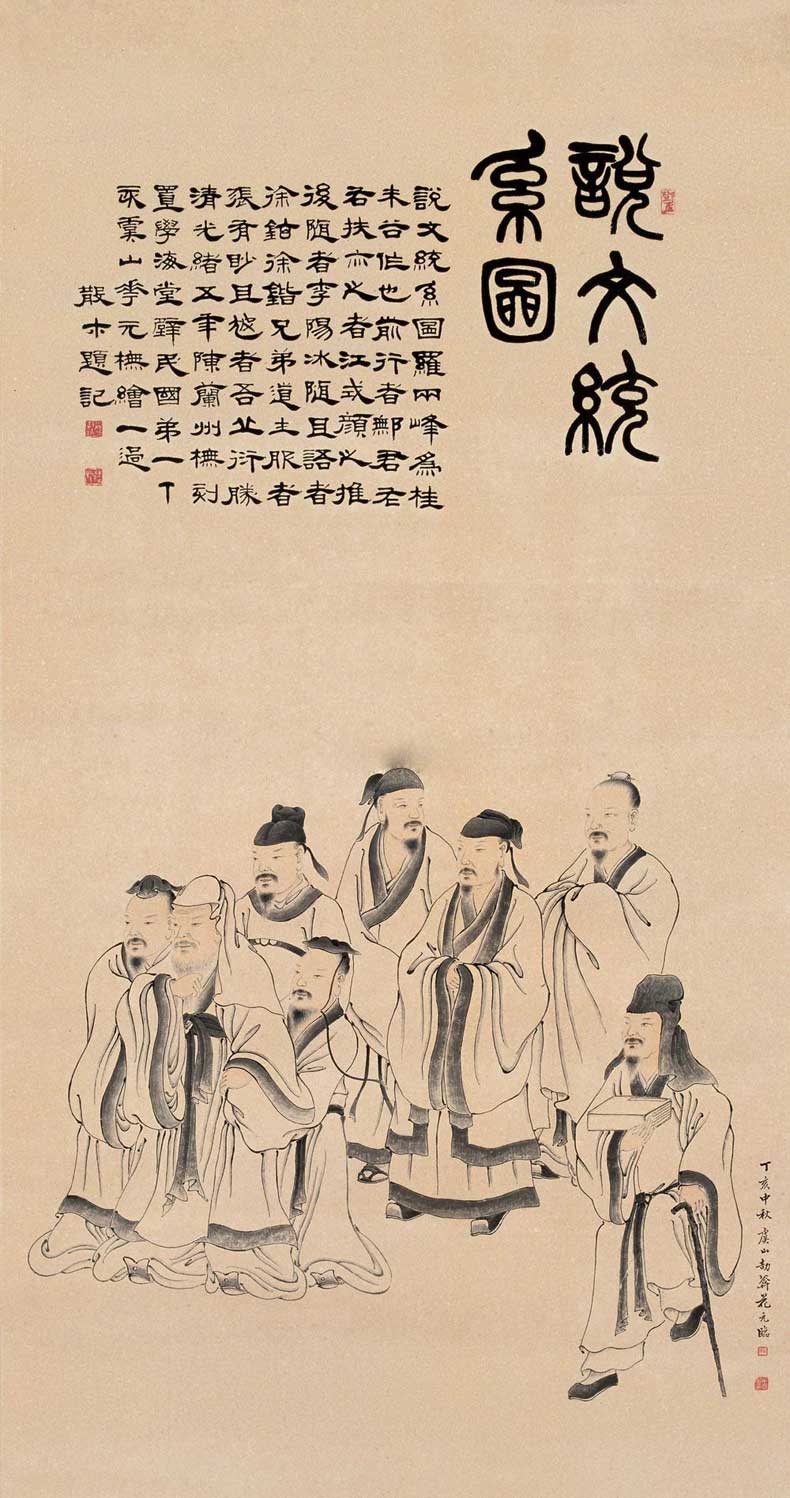 說文統
系圖
說文統系圖羅兩峰為桂
未谷作也前行者鄦君左
右扶亦之者江式顏之推
後隨者李陽冰隨且語者
徐鉉徐鍇兄弟道士服者
張有眇且者吾丘衍勝
清光緒五年陳蘭州橅刻
置學海堂壁民國第一丁
亥虞山華元橅繪一過
散木題記
丁亥中秋虞山劬葊花元臨